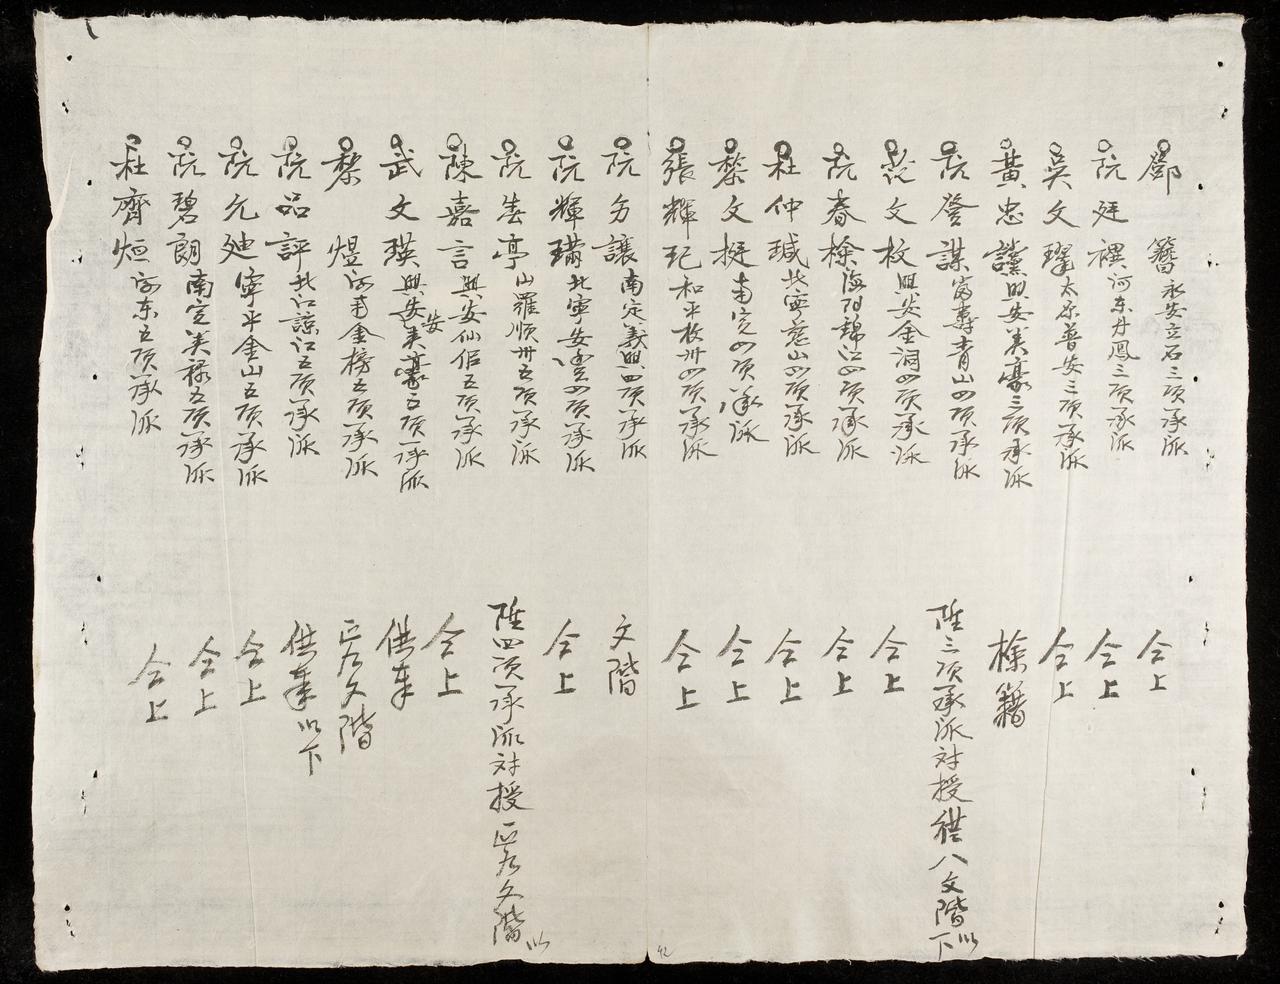 鄧簪永安立石三項承派 仝上
阮廷禩河东丹鳳三項承派 仝上
吳文瑾太原普安三項承派 仝上
黃忠讜興安美豪三項承派 㨂籍
阮登謀富壽青山四項承派 陞三項承派対授從八文階以下
范文枚興安金洞四項承派 仝上
阮春㨂海阳錦江四項承派 仝上
杜仲瑊北宁慈山四項承派 仝上
黎文挺南定四項承派 仝上
張輝玘和平枚州四項承派 仝上
阮多讓南定義興四項承派 文階
阮輝璛北宁安豐四項承派 仝上
阮春亭山羅順州五項承派 陞四項承派対授正九文階以
陳嘉言興安仙侶五項承派 仝上
武文瑛興安安美豪五項承派 供事
黎煜河南金榜五項承派 正九文階
阮品評北江諒江五項承派 供事以下
阮允迪寧平金山五項承派 仝上
阮碧朗南定美祿五項承派 仝上
杜齊烜河东五項承派 仝上
42